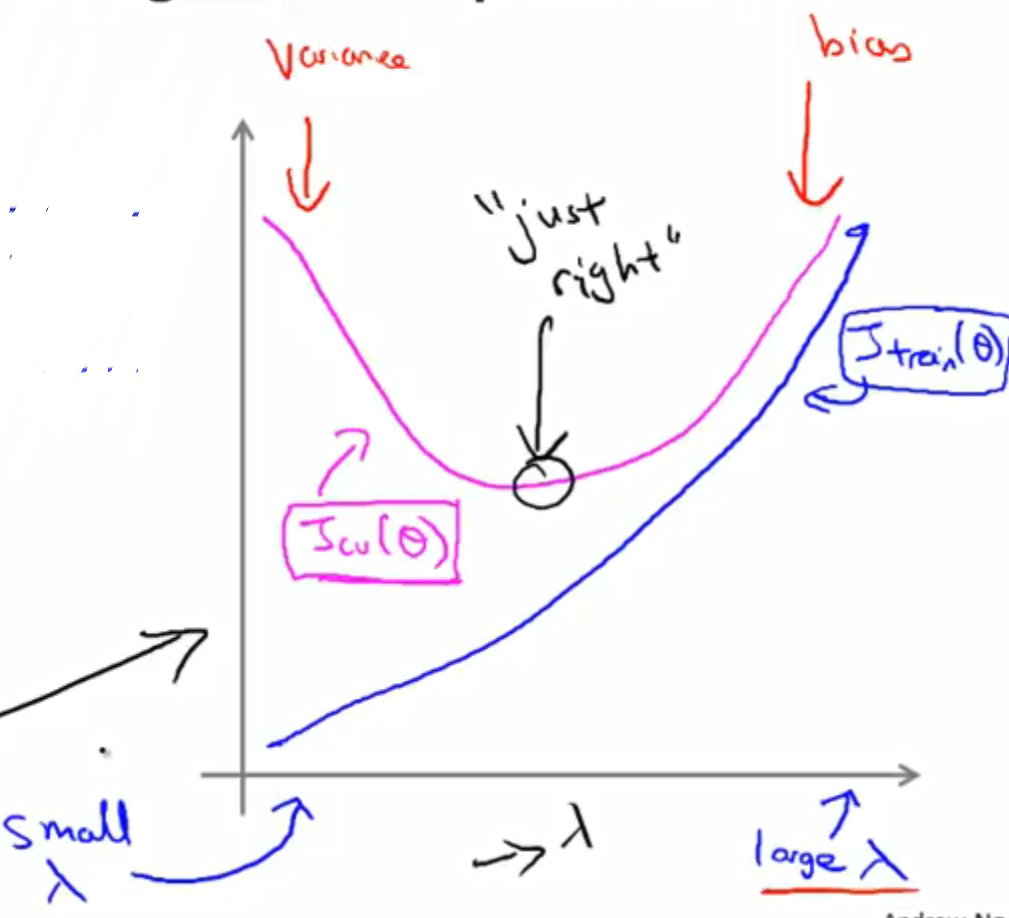 Variance
bias
"just
right"
J train(θ)
Jcv(θ)
small
λ
λ
large λ